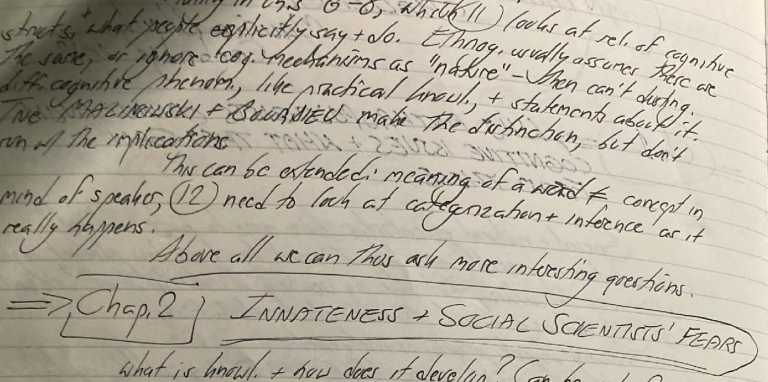 in this 6-8, which 11) looks at rel. of cognitive
structs, what people explicitly say + do. Ethnog. usually assumes these are
the same, or ignore cog. mechanisms as "nature" - then can't disting.
diff. cognitive phenom, like practical knowl., + statements about it.
MALINOWSKI + BOURDIEU make the distinction, but don't
run w/ the implications
This can be extended: meaning of a word ≠ concept in
mind of speaker, (12) need to look at categorization + inference as it
really happens.
Above all we can thus ask more interesting questions.
⇒ Chap. 2 INNATENESS + SOCIAL SCIENTISTS' FEARS
What is knowl. + how does it develop? Can